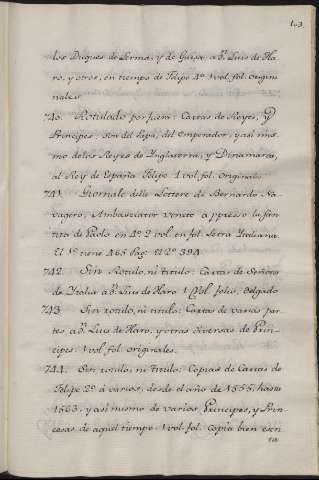 103
los Duques de Lerma, y de Guisa, a Dn. Luis de Ha
ro, y otros, en tiempo de Felipe 4º 1 vol. fol. origin
nales.
740. Rotulado por fuera: Cartas de Reyes, y
Principes. Son del Papa, del Emperador, y asi mis
mo de los Reyes de Inglaterra, y Dinamarca,
al Rey de España Felipe 1 vol. fol. Originales
741. Giornale delle Lettere de Bernardo Na
vagero, Ambasciator Veneto appresso la San
tita de Paolo en 4º 2 vol. en fol. Letra Italiana.
El 1º tiene 465 Pag. El 2º 394
742. Sin Rotulo, ni titulo: Cartas de Señores
de Italia a Dn. Luis de Haro 1 Vol. folio, Delgado
743 Sin rotulo, ni titulo: Cartas de varias par
tes a Dn. Luis de Haro, y otras diversas de Prin
cipes. 1 vol. fol. originales.
744. Sin rotulo, ni titulo: Copias de Cartas de
Felipe 2º a varios, desde el año de 1555, hasta
1563, y asi mismo de varios Principes, y Prin
cesas de aquel tiempo. 1 vol. fol. Copia bien escri